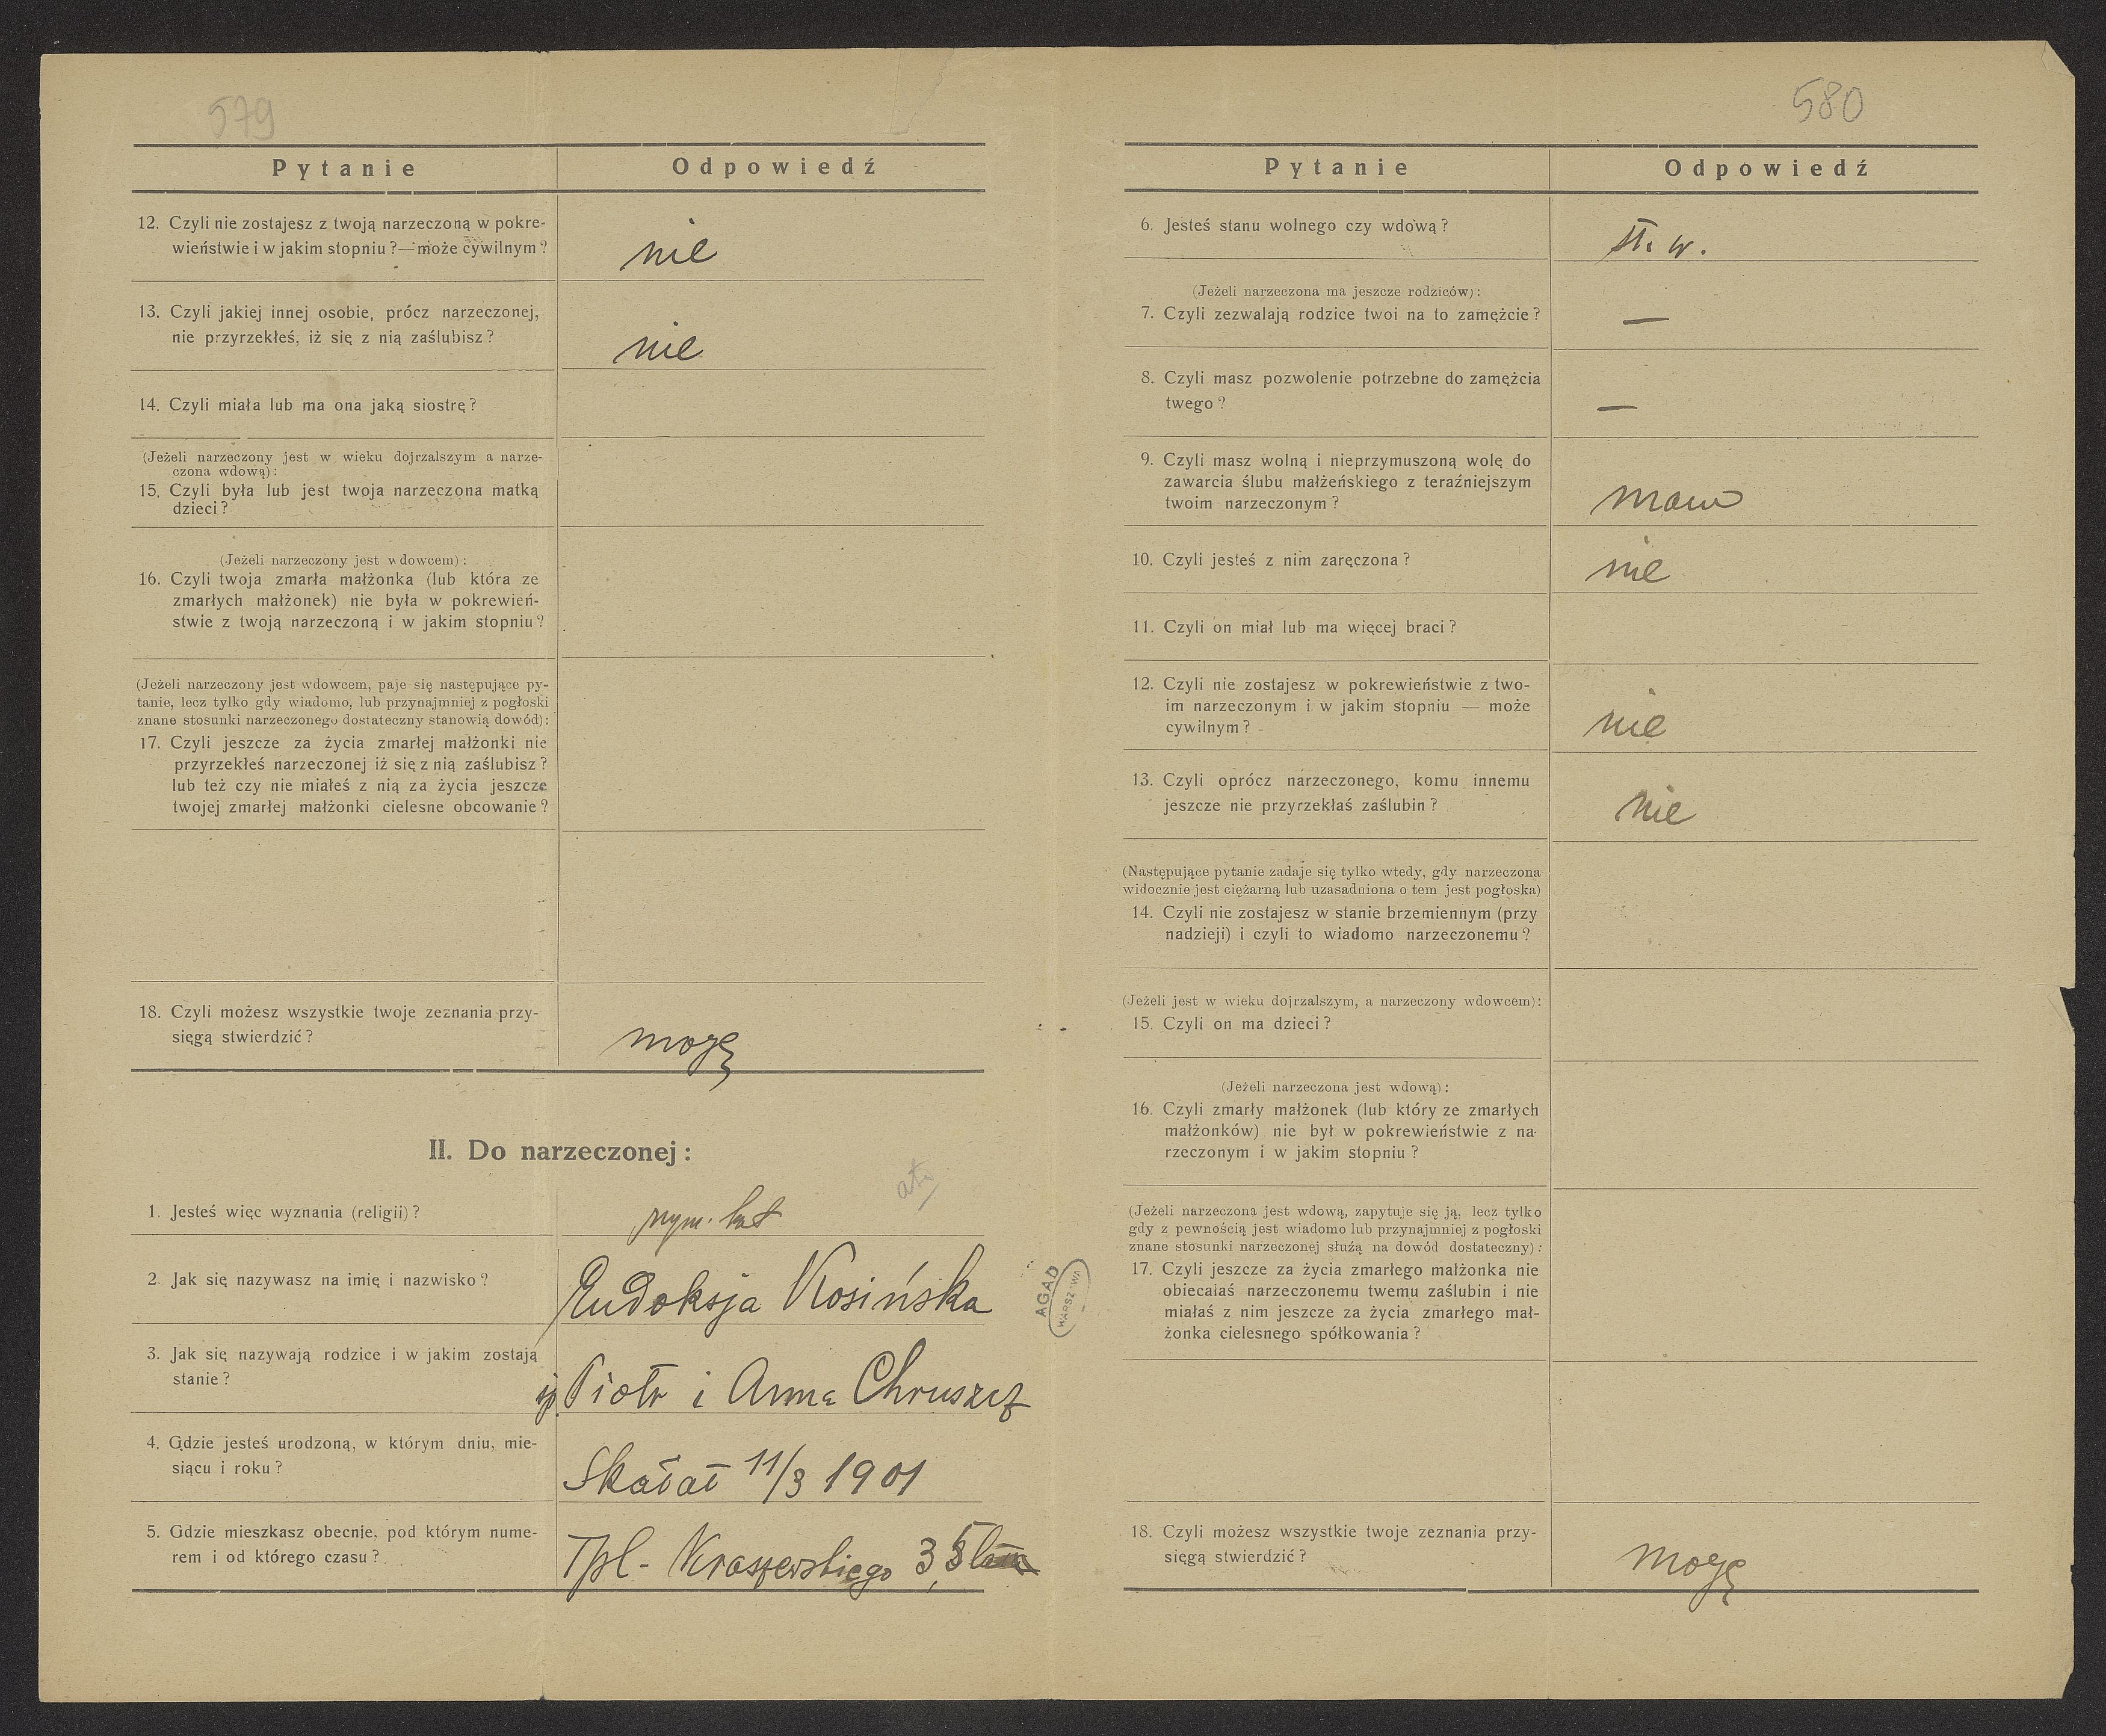 579
Pytanie Odpowiedź
12. Czyli nie zostajesz z twoją narzeczoną w pokre-
wieństwie i w jakim stopniu ? — może cywilnym ?
nie
13. Czyli jakiej innej osobie, prócz narzeczonej,
nie przyrzekłeś, iż się z nią zaślubisz ?
nie
14. Czyli miała lub ma ona jaką siostrę ?
(Jeżeli narzeczony jest w wieku dojrzalszym a narze-
czona wdową) :
15. Czyli była lub jest twoja narzeczona matką
dzieci ?
(Jeżeli narzeczony jest wdowcem) :
16. Czyli twoja zmarła małżonka (lub która ze
zmarłych małżonek) nie była w pokrewień-
stwie z twoją narzeczoną i w jakim stopniu ?
(Jeżeli narzeczony jest wdowcem, paje się następujące py-
tanie, lecz tylko gdy wiadomo, lub przynajmniej z pogłoski
znane stosunki narzeczonego dostateczny stanowią dowód) :
17. Czyli jeszcze za życia zmarłej małżonki nie
przyrzekłeś narzeczonej iż się z nią zaślubisz ?
lub też czy nie miałeś z nią za życia jeszcze
twojej zmarłej małżonki cielesne obcowanie ?
18. Czyli możesz wszystkie twoje zeznania przy-
sięgą stwierdzić ?
mogę
II. Do narzeczonej :
1. Jesteś więc wyznania (religii) ?
rzym. kat
2. Jak się nazywasz na imię i nazwisko ?
Eudoksja Kosińska
3. Jak się nazywają rodzice i w jakim zostają
stanie ?
śp. Piotr i Anna Chruszcz
4. Gdzie jesteś urodzoną, w którym dniu, mie-
siącu i roku ?
Skałat 11/3 1901
5. Gdzie mieszkasz obecnie, pod którym nume-
rem i od którego czasu ?
Tpl - Kraszewskiego 3,
AGAD
WARSZAWA
580
Pytanie Odpowiedź
6. Jesteś stanu wolnego czy wdową ?
st. w.
(Jeżeli narzeczona ma jeszcze rodziców) :
7. Czyli zezwalają rodzice twoi na to zamężcie ?
—
8. Czyli masz pozwolenie potrzebne do zamężcia
twego ?
—
9. Czyli masz wolną i nieprzymuszoną wolę do
zawarcia ślubu małżeńskiego z teraźniejszym
twoim narzeczonym ?
mam
10. Czyli jesteś z nim zaręczona ?
nie
11. Czyli on miał lub ma więcej braci ?
12. Czyli nie zostajesz w pokrewieństwie z two-
im narzeczonym i w jakim stopniu — może
cywilnym ?
nie
13. Czyli oprócz narzeczonego, komu innemu
jeszcze nie przyrzekłaś zaślubin ?
nie
(Następujące pytanie zadaje się tylko wtedy, gdy narzeczona
widocznie jest ciężarną lub uzasadniona o tem jest pogłoska)
14. Czyli nie zostajesz w stanie brzemiennym (przy
nadzieji) i czyli to wiadomo narzeczonemu ?
(Jeżeli jest w wieku dojrzalszym, a narzeczony wdowcem) :
15. Czyli on ma dzieci ?
(Jeżeli narzeczona jest wdową) :
16. Czyli zmarły małżonek (lub który ze zmarłych
małżonków) nie był w pokrewieństwie z na-
rzeczonym i w jakim stopniu ?
(Jeżeli narzeczona jest wdową, zapytuje się ją, lecz tylko
gdy z pewnością jest wiadomo lub przynajmniej z pogłoski
znane stosunki narzeczonej służą na dowód dostateczny) :
17. Czyli jeszcze za życia zmarłego małżonka nie
obiecałaś narzeczonemu twemu zaślubin i nie
miałaś z nim jeszcze za życia zmarłego mał-
żonka cielesnego spółkowania ?
18. Czyli możesz wszystkie twoje zeznania przy-
sięgą stwierdzić ?
mogę